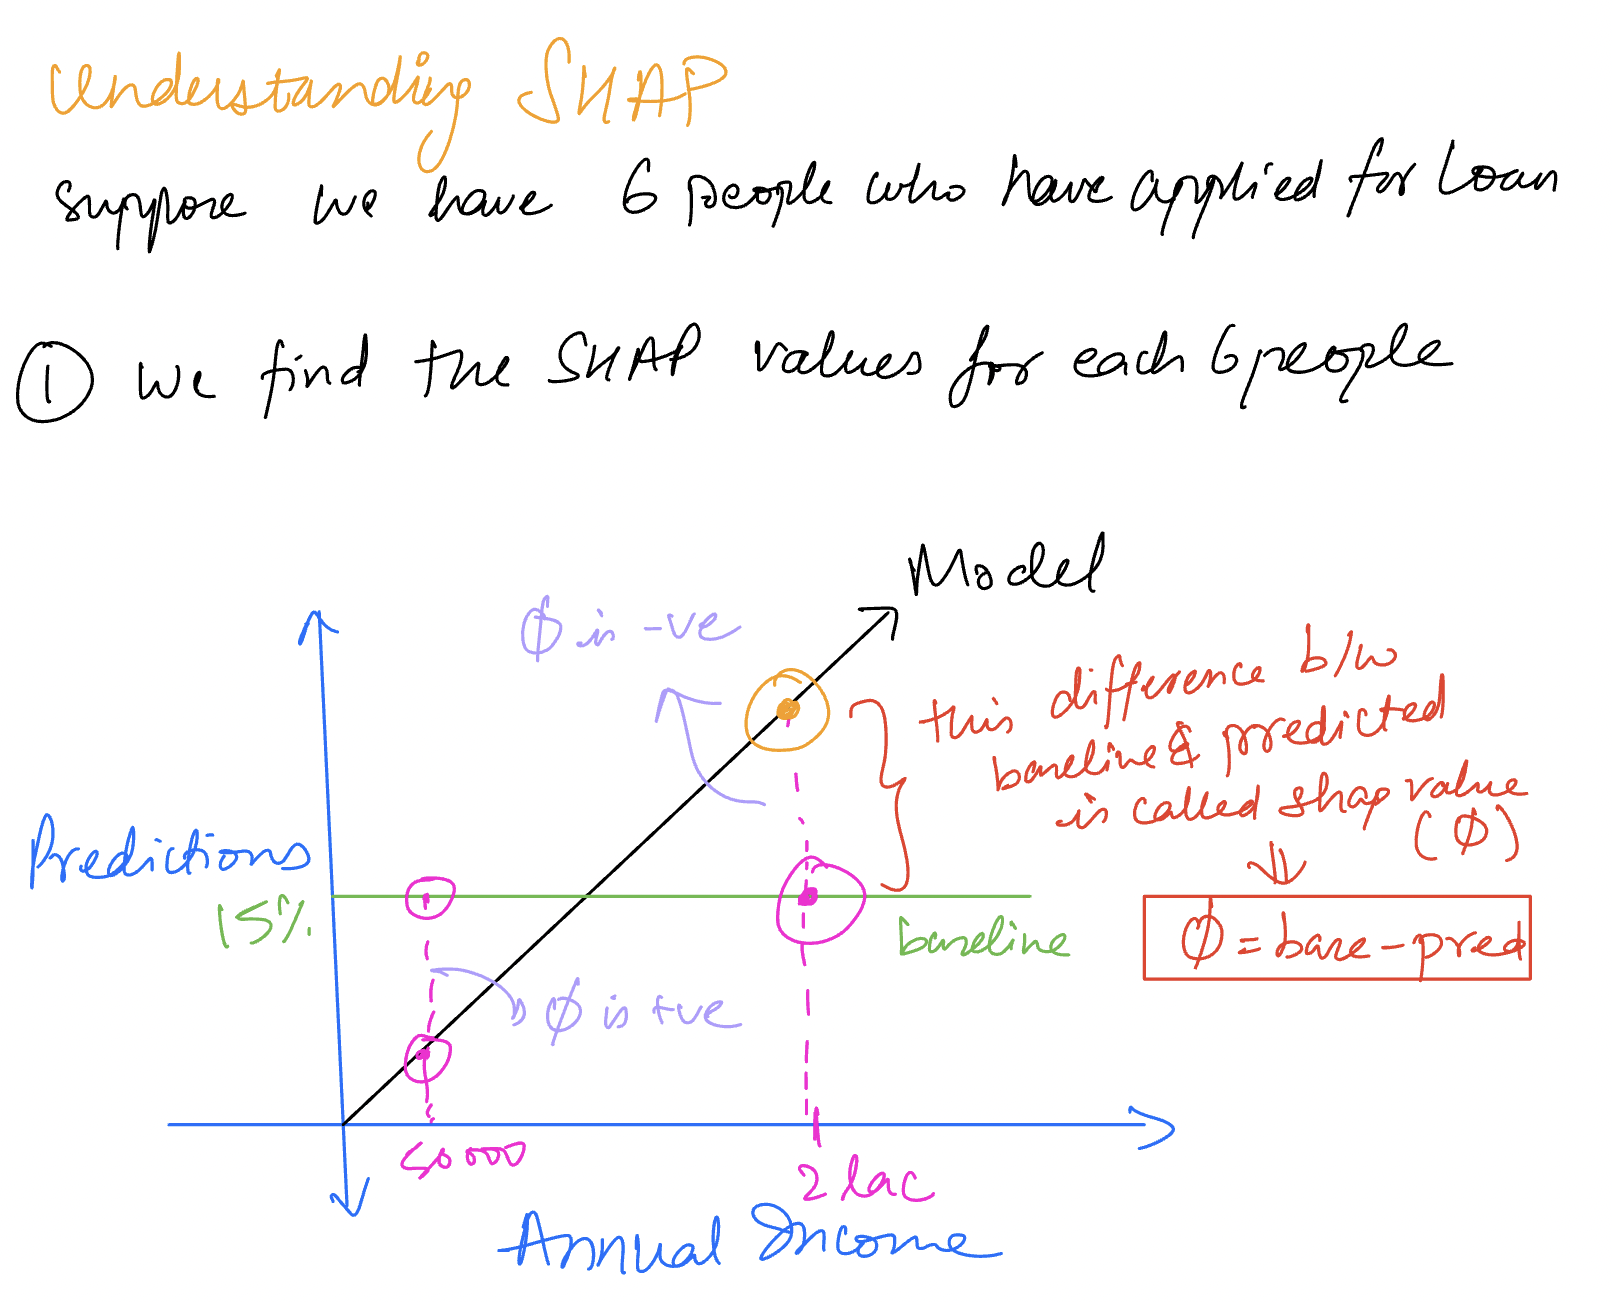 Understanding SHAP
suppose we have 6 people who have applied for Loan
① We find the SHAP values for each 6 people
Model
ϕ is -ve
this difference b/w
baseline & predicted
is called shap value
(ϕ)
⇓
Predictions
15%
baseline
ϕ = base - pred
ϕ is +ve
50000
2 lac
Annual Income